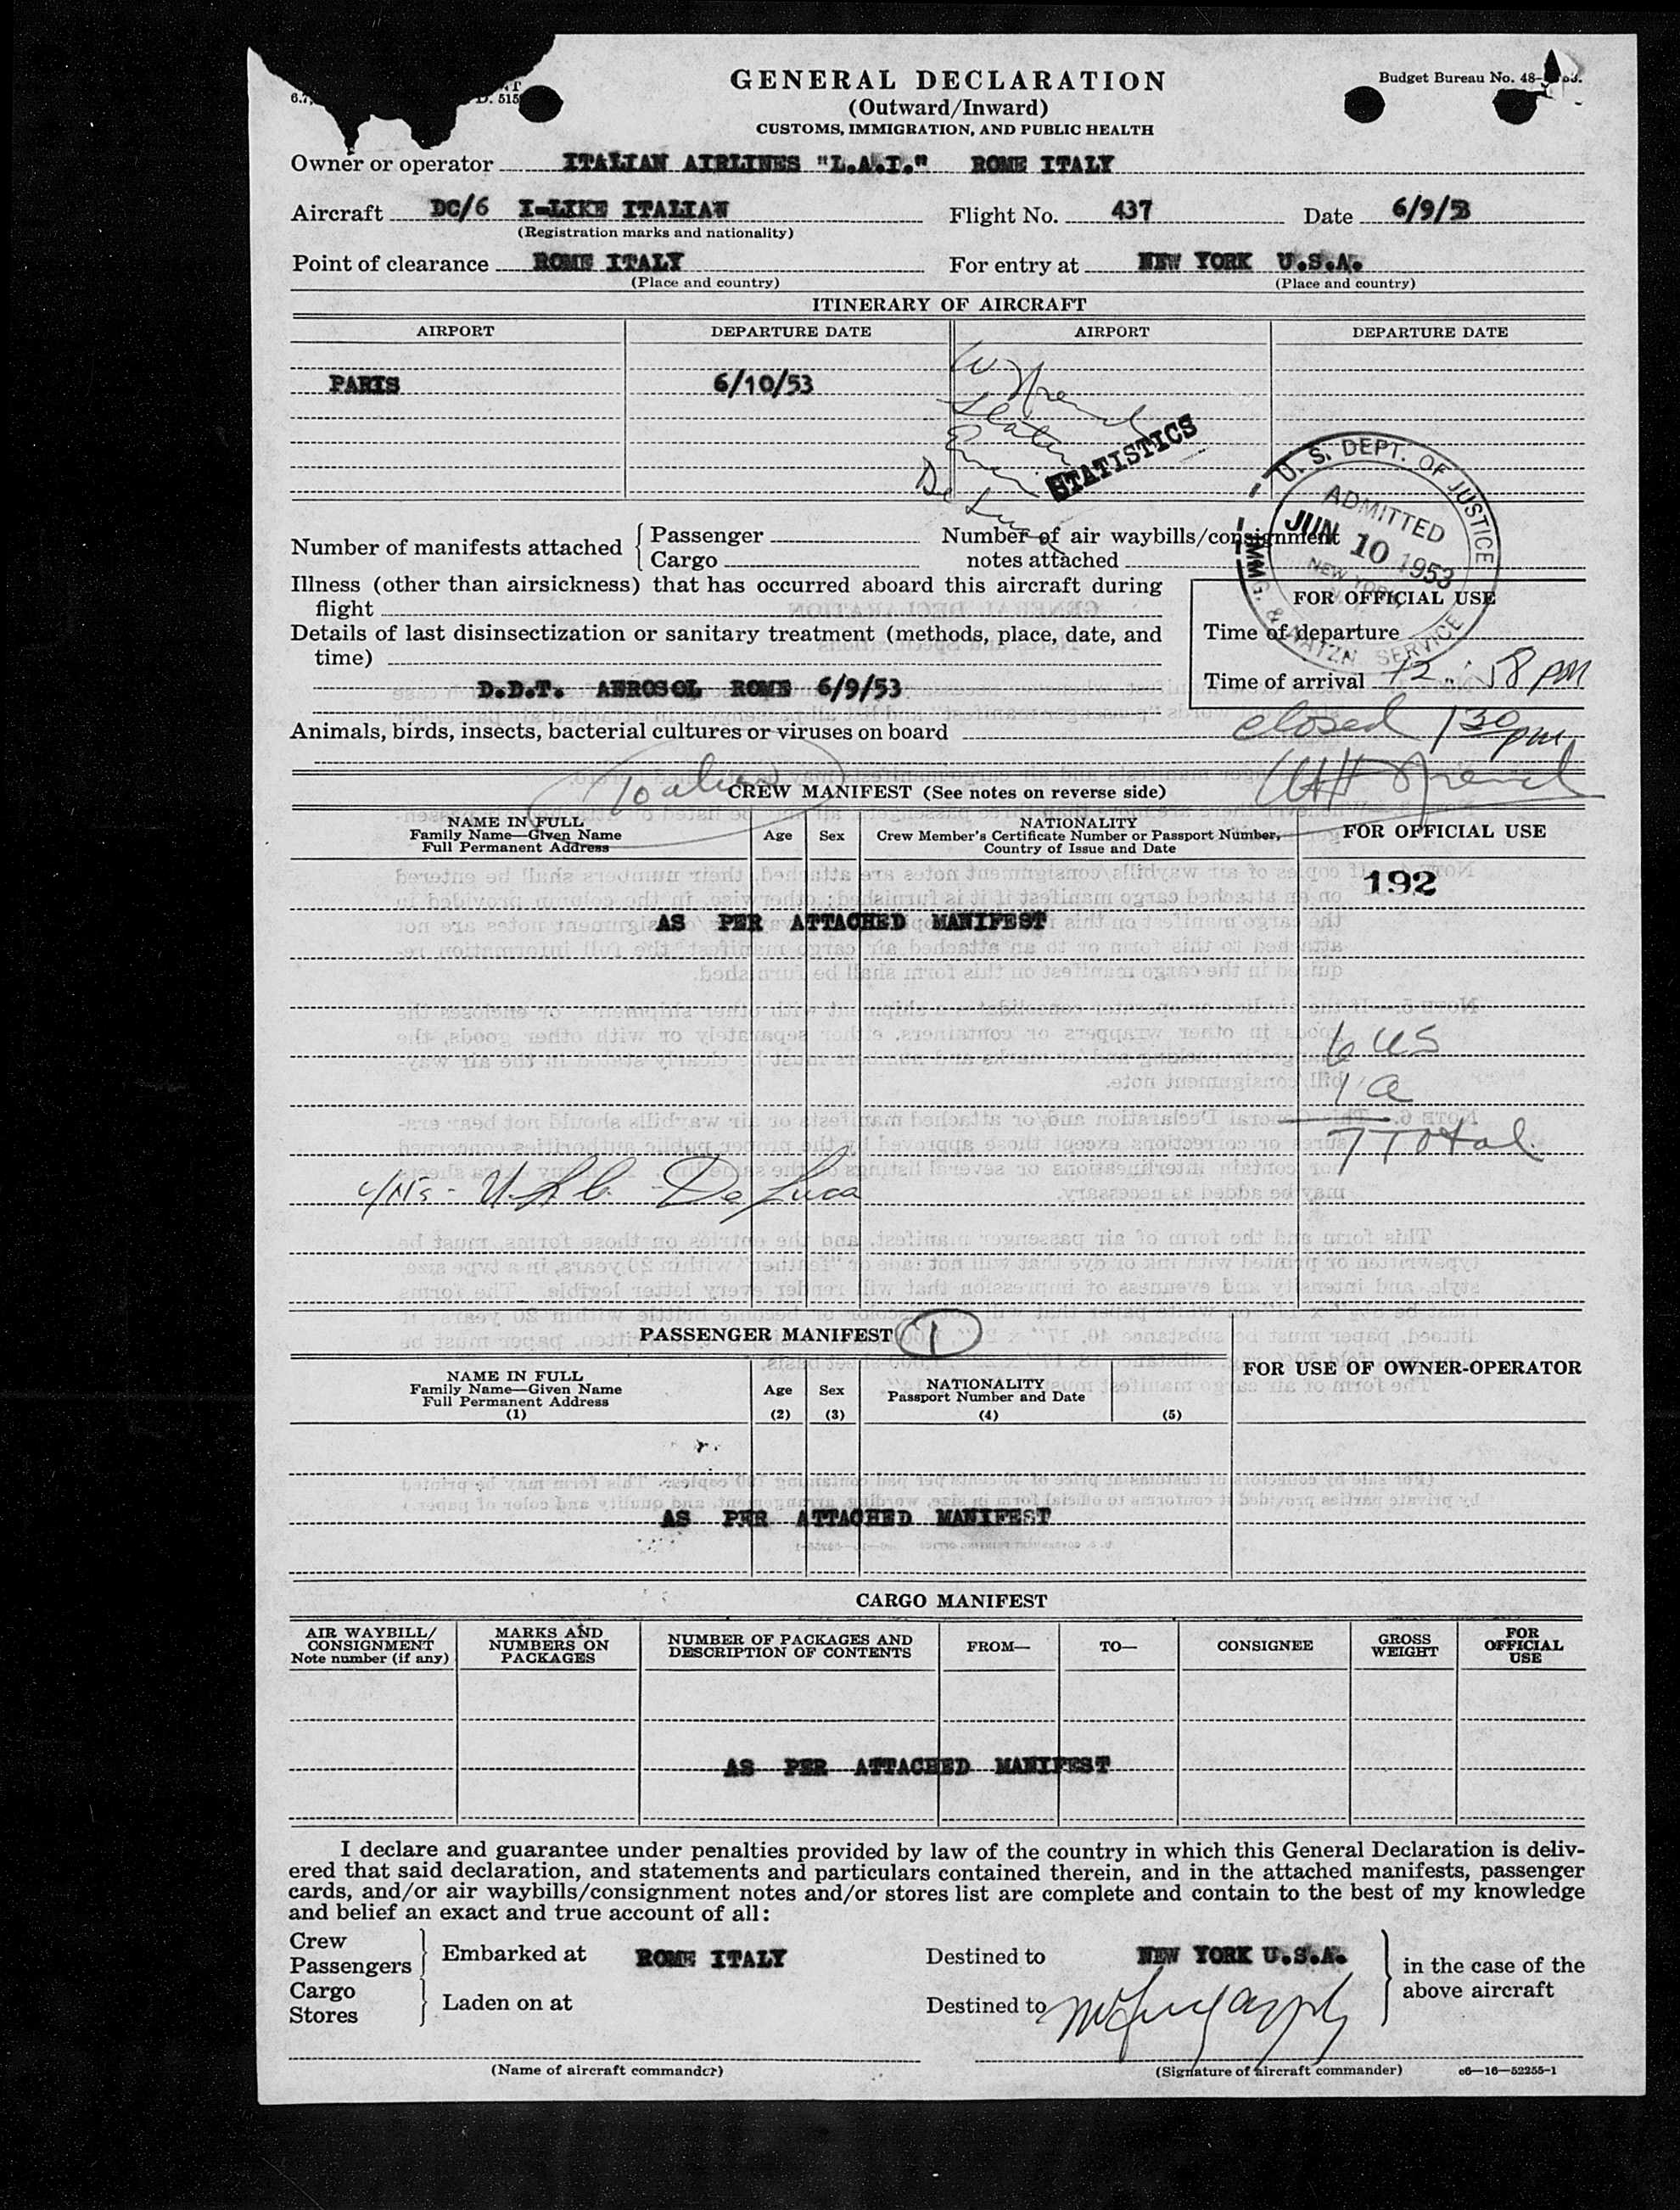 GENERAL DECLARATION
(Outward/Inward)
CUSTOMS, IMMIGRATION, AND PUBLIC HEALTH
Budget Bureau No. 48-
Owner or operator ITALIAN AIRLINES "L.A.I." ROME ITALY
Aircraft DC/6 I-LIKE ITALIAN Flight No. 437 Date 6/9/53
(Registration marks and nationality)
Point of clearance ROME ITALY For entry at NEW YORK U.S.A.
(Place and country) (Place and country)
ITINERARY OF AIRCRAFT
AIRPORT DEPARTURE DATE AIRPORT DEPARTURE DATE
PARIS 6/10/53
STATISTICS
U. S. DEPT. OF JUSTICE
IMMG. & NATZN SERVICE
ADMITTED
JUN 10 1953
NEW YORK, N. Y.
Number of manifests attached { Passenger
Cargo
Number of air waybills/consignment
notes attached
Illness (other than airsickness) that has occurred aboard this aircraft during
flight
Details of last disinsectization or sanitary treatment (methods, place, date, and
time)
D.D.T. AEROSOL ROME 6/9/53
FOR OFFICIAL USE
Time of departure
Time of arrival 12:58 PM
closed 1 30 pm
Animals, birds, insects, bacterial cultures or viruses on board
CREW MANIFEST (See notes on reverse side)
NAME IN FULL
Family Name—Given Name
Full Permanent Address
Age Sex
NATIONALITY
Crew Member's Certificate Number or Passport Number,
Country of Issue and Date
FOR OFFICIAL USE
192
AS PER ATTACHED MANIFEST
6 US
1 a
7 Total
De Luca
PASSENGER MANIFEST 1
NAME IN FULL
Family Name—Given Name
Full Permanent Address
(1)
Age
(2)
Sex
(3)
NATIONALITY
Passport Number and Date
(4) (5)
FOR USE OF OWNER-OPERATOR
AS PER ATTACHED MANIFEST
CARGO MANIFEST
AIR WAYBILL/
CONSIGNMENT
Note number (if any)
MARKS AND
NUMBERS ON
PACKAGES
NUMBER OF PACKAGES AND
DESCRIPTION OF CONTENTS
FROM— TO— CONSIGNEE
GROSS
WEIGHT
FOR
OFFICIAL
USE
AS PER ATTACHED MANIFEST
I declare and guarantee under penalties provided by law of the country in which this General Declaration is deliv-
ered that said declaration, and statements and particulars contained therein, and in the attached manifests, passenger
cards, and/or air waybills/consignment notes and/or stores list are complete and contain to the best of my knowledge
and belief an exact and true account of all:
Crew
Passengers } Embarked at ROME ITALY Destined to NEW YORK U.S.A.
Cargo
Stores } Laden on at Destined to
in the case of the
above aircraft
(Name of aircraft commander) (Signature of aircraft commander) c6—16—52255-1